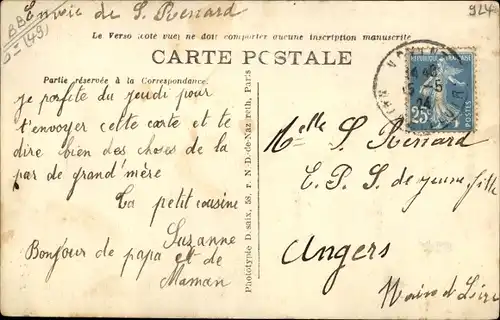 Envoie de S. Renard
924
ABB
(49)
Le Verso (coté vue) ne doit comporter aucune inscription manuscrite
CARTE POSTALE
Partie réservée à la Correspondance.
REPUBLIQUE FRANÇAISE
25c
POSTES
15-5
24
je porfite du jeudi pour
t'envoyer cette carte et te
dire bien des choses de la
par de grand'mère
Ta petit cousine
Suzanne
Bonjour de papa et de
Maman
Phototypie D.saix, 58, r. N.-D.-de-Nazareth, Paris
Melle S. Renard
E. P. S. de jeune fille
Angers
Maine et Loire